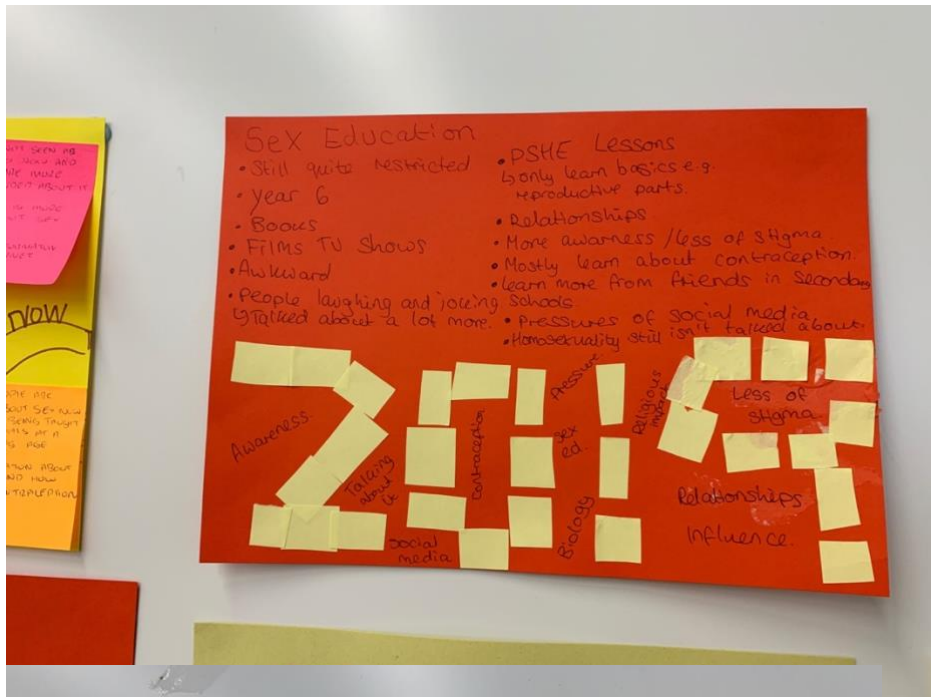 Sex Education
• Still quite restricted
• Year 6
• Books
• Films TV Shows
• Awkward
• People laughing and joking
↳ Talked about a lot more.
• PSHE Lessons
↳ only learn basics e.g.
reproductive parts.
• Relationships
• More awarness / less of stigma
• Mostly learn about contraception.
• learn more from friends in Secondary
Schools
• Pressures of social media
• Homosexuality still isn't talked about.
2019
Awareness.
Talking
about
it
Social
media
contraception
Pressure
Sex
ed.
Biology
Religious
impact
Less of
stigma
Relationships
Influence.
NOW
NOW AND
MORE
ABOUT IT
MORE
SEX
ABOUT SEX NOW
BEING TAUGHT
AT A
AGE
ABOUT
AND HOW
CONTRACEPTION